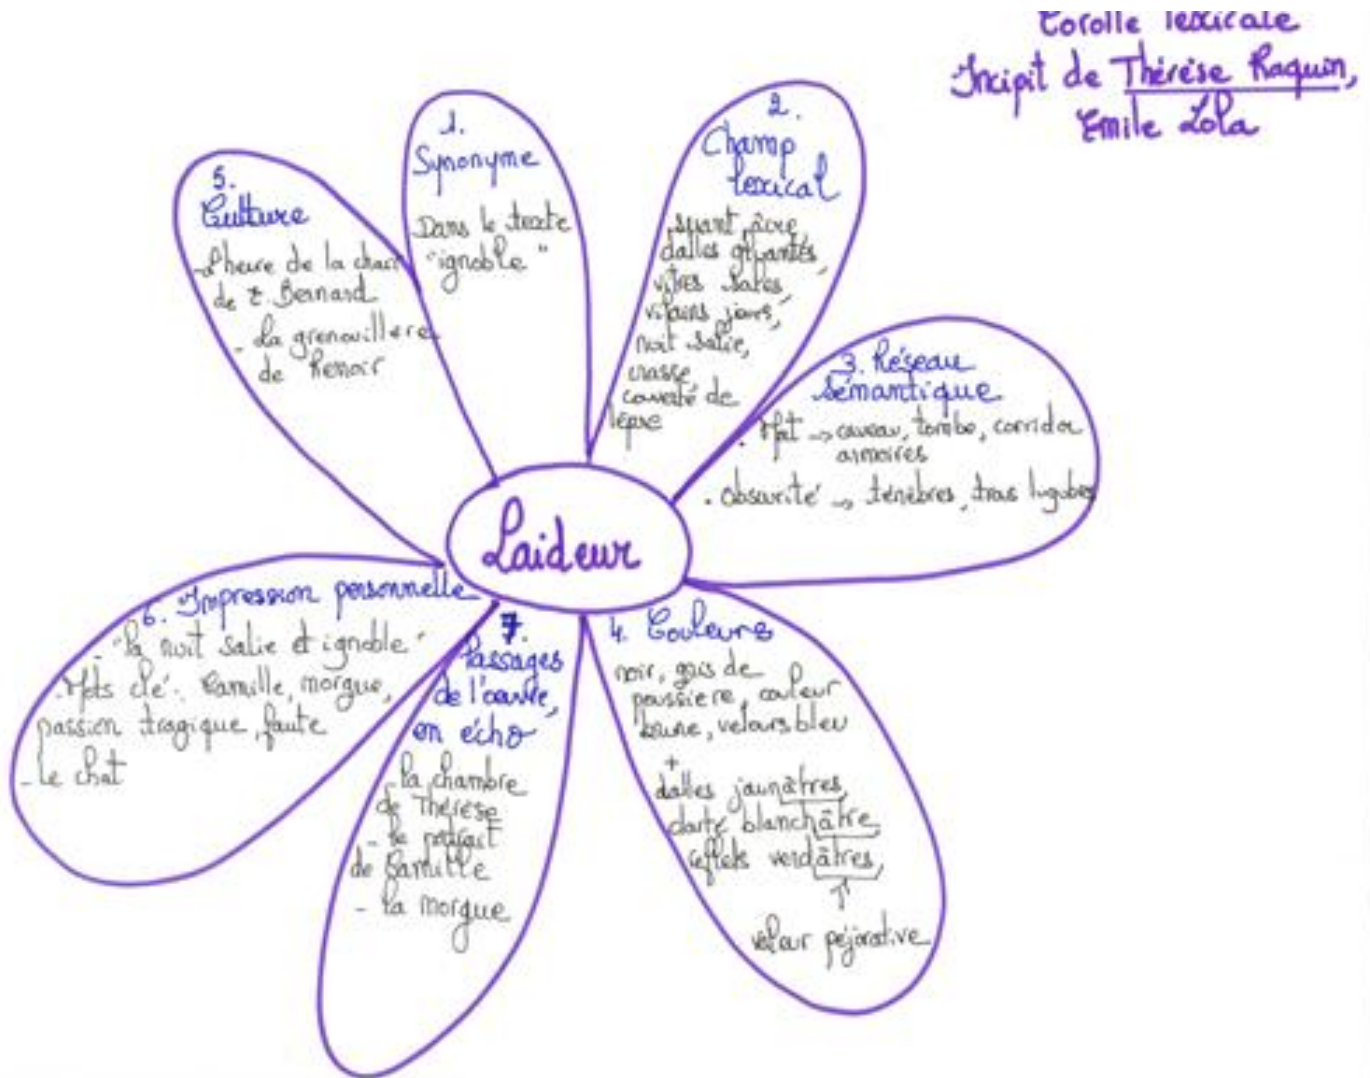 Corolle lexicale
Incipit de Thérèse Raquin,
Emile Zola
1.
Synonyme
Dans le texte
"ignoble"
2.
Champ
lexical
suant, âcre,
dalles gluantes,
vitres sales,
vilains jours,
nuit salie,
crasse,
couverte de
lèpre
3. Réseau
sémantique
. Mort → caveau, tombe, corridor
armoires
. obscurité → ténèbres, trous lugubres
4. Couleurs
noir, gris de
poussière, couleur
brune, velours bleu
+
dalles jaunâtres,
clarté blanchâtre,
reflets verdâtres,
↑
valeur péjorative
5.
Culture
- L'heure de la
de E. Bernard
- La grenouillère
de Renoir
6. Impression personnelle
- "la nuit salie et ignoble"
- Mots clé: Camille, morgue,
passion tragique, faute
- Le chat
7.
Passages
de l'œuvre,
en écho
- la chambre
de Thérèse
- le portrait
de Camille
- la morgue
Laideur